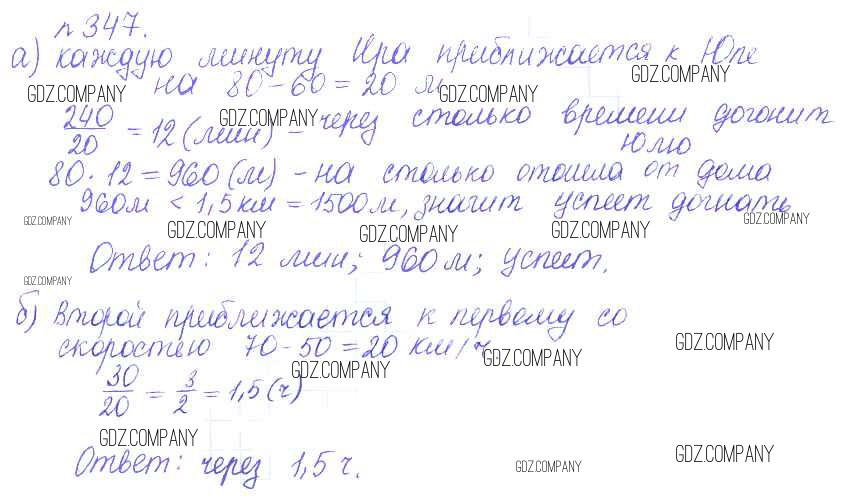 n 347.
а) каждую минуту Ира приближается к Юле
на 80 - 60 = 20 м
GDZ.COMPANY GDZ.COMPANY GDZ.COMPANY
240/20 = 12 (мин) - через столько времени догонит
GDZ.COMPANY
Юлю
80 · 12 = 960 (м) - на столько отошла от дома
960м < 1,5 км = 1500 м, значит успеет догнать
GDZ.COMPANY GDZ.COMPANY GDZ.COMPANY GDZ.COMPANY GDZ.COMPANY
Ответ: 12 мин; 960 м; успеет.
GDZ.COMPANY
б) Второй приближается к первому со
скоростью 70 - 50 = 20 км/ч.
GDZ.COMPANY GDZ.COMPANY GDZ.COMPANY
30/20 = 3/2 = 1,5 (ч)
GDZ.COMPANY
Ответ: через 1,5 ч.
GDZ.COMPANY GDZ.COMPANY